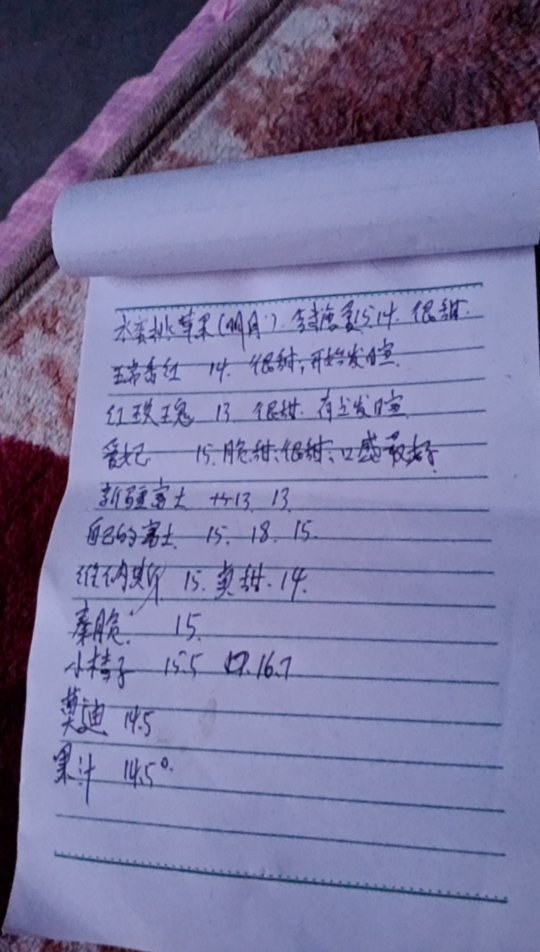 水蜜桃苹果(明月).含糖量15.14.很甜.
香红 14. 很甜,开始发暄.
红玫瑰 13. 很甜. 有点发暄.
爱妃 15. 脆甜.很甜、口感最好
新疆富士 13. 13.
自己的富士. 15. 18. 15.
维纳斯 15. 真甜. 14.
秦脆. 15.
小桔子 15.5 17. 16.7
莫迪 14.5
果汁 14.5°.